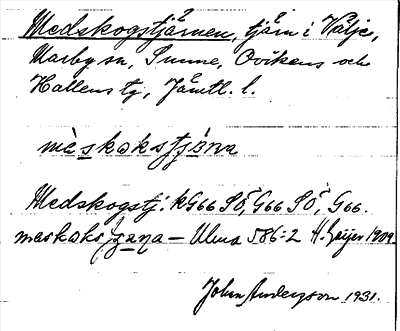 Medskogstjärnen, tjärn i Välje,
Marby sn, Sunne, Ovikens och
Hallens tg, Jämtl. l.
mèskokstjà̤na
Medskogstj: kG66 SÖ, G66 SÖ, G66.
meskoks tjana – Ulma 586:2 H. Geijer 1909.
John Anderson 1931.